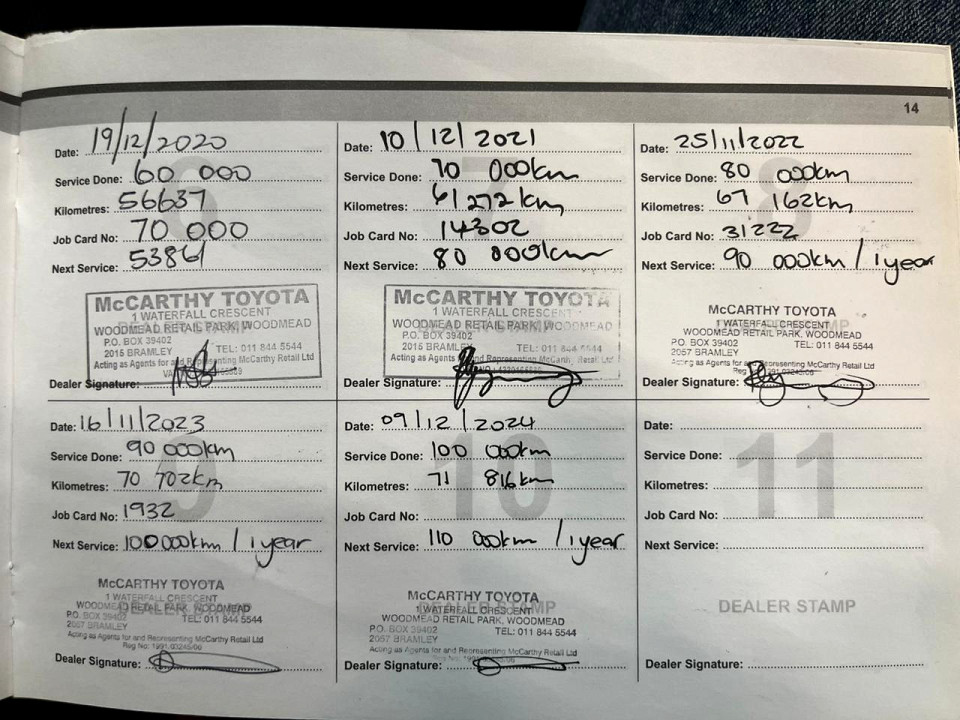 14
Date: 19/12/2020
Service Done: 60 000
Kilometres: 56637
Job Card No: 70 000
Next Service: 53861
McCARTHY TOYOTA
1 WATERFALL CRESCENT
WOODMEAD RETAIL PARK, WOODMEAD
P.O. BOX 39402
2015 BRAMLEY TEL: 011 844 5544
Acting as Agents for and Representing McCarthy Retail Ltd
Dealer Signature:
Date: 10/12/2021
Service Done: 70 000km
Kilometres: 61272km
Job Card No: 14302
Next Service: 80 000km
McCARTHY TOYOTA
1 WATERFALL CRESCENT
WOODMEAD RETAIL PARK, WOODMEAD
P.O. BOX 39402
2015 BRAMLEY TEL: 011 844 5544
Acting as Agents for and Representing McCarthy Retail Ltd
Dealer Signature:
8
Date: 25/11/2022
Service Done: 80 000km
Kilometres: 67 162km
Job Card No: 31222
Next Service: 90 000km / 1year
McCARTHY TOYOTA
1 WATERFALL CRESCENT
WOODMEAD RETAIL PARK, WOODMEAD
P.O. BOX 39402 TEL: 011 844 5544
2057 BRAMLEY
Acting as Agents for and Representing McCarthy Retail Ltd
Dealer Signature:
9
Date: 16/11/2023
Service Done: 90 000km
Kilometres: 70 702km
Job Card No: 1932
Next Service: 100 000km / 1year
McCARTHY TOYOTA
1 WATERFALL CRESCENT
WOODMEAD RETAIL PARK, WOODMEAD
P.O. BOX 39402 TEL: 011 844 5544
2057 BRAMLEY
Acting as Agents for and Representing McCarthy Retail Ltd
Reg No: 1991/03245/06
Dealer Signature:
10
Date: 09/12/2024
Service Done: 100 000km
Kilometres: 71 816km
Job Card No:
Next Service: 110 000km / 1year
McCARTHY TOYOTA
1 WATERFALL CRESCENT
WOODMEAD RETAIL PARK, WOODMEAD
P.O. BOX 39402 TEL: 011 844 5544
2057 BRAMLEY
Acting as Agents for and Representing McCarthy Retail Ltd
Dealer Signature:
11
Date:
Service Done:
Kilometres:
Job Card No:
Next Service:
DEALER STAMP
Dealer Signature: